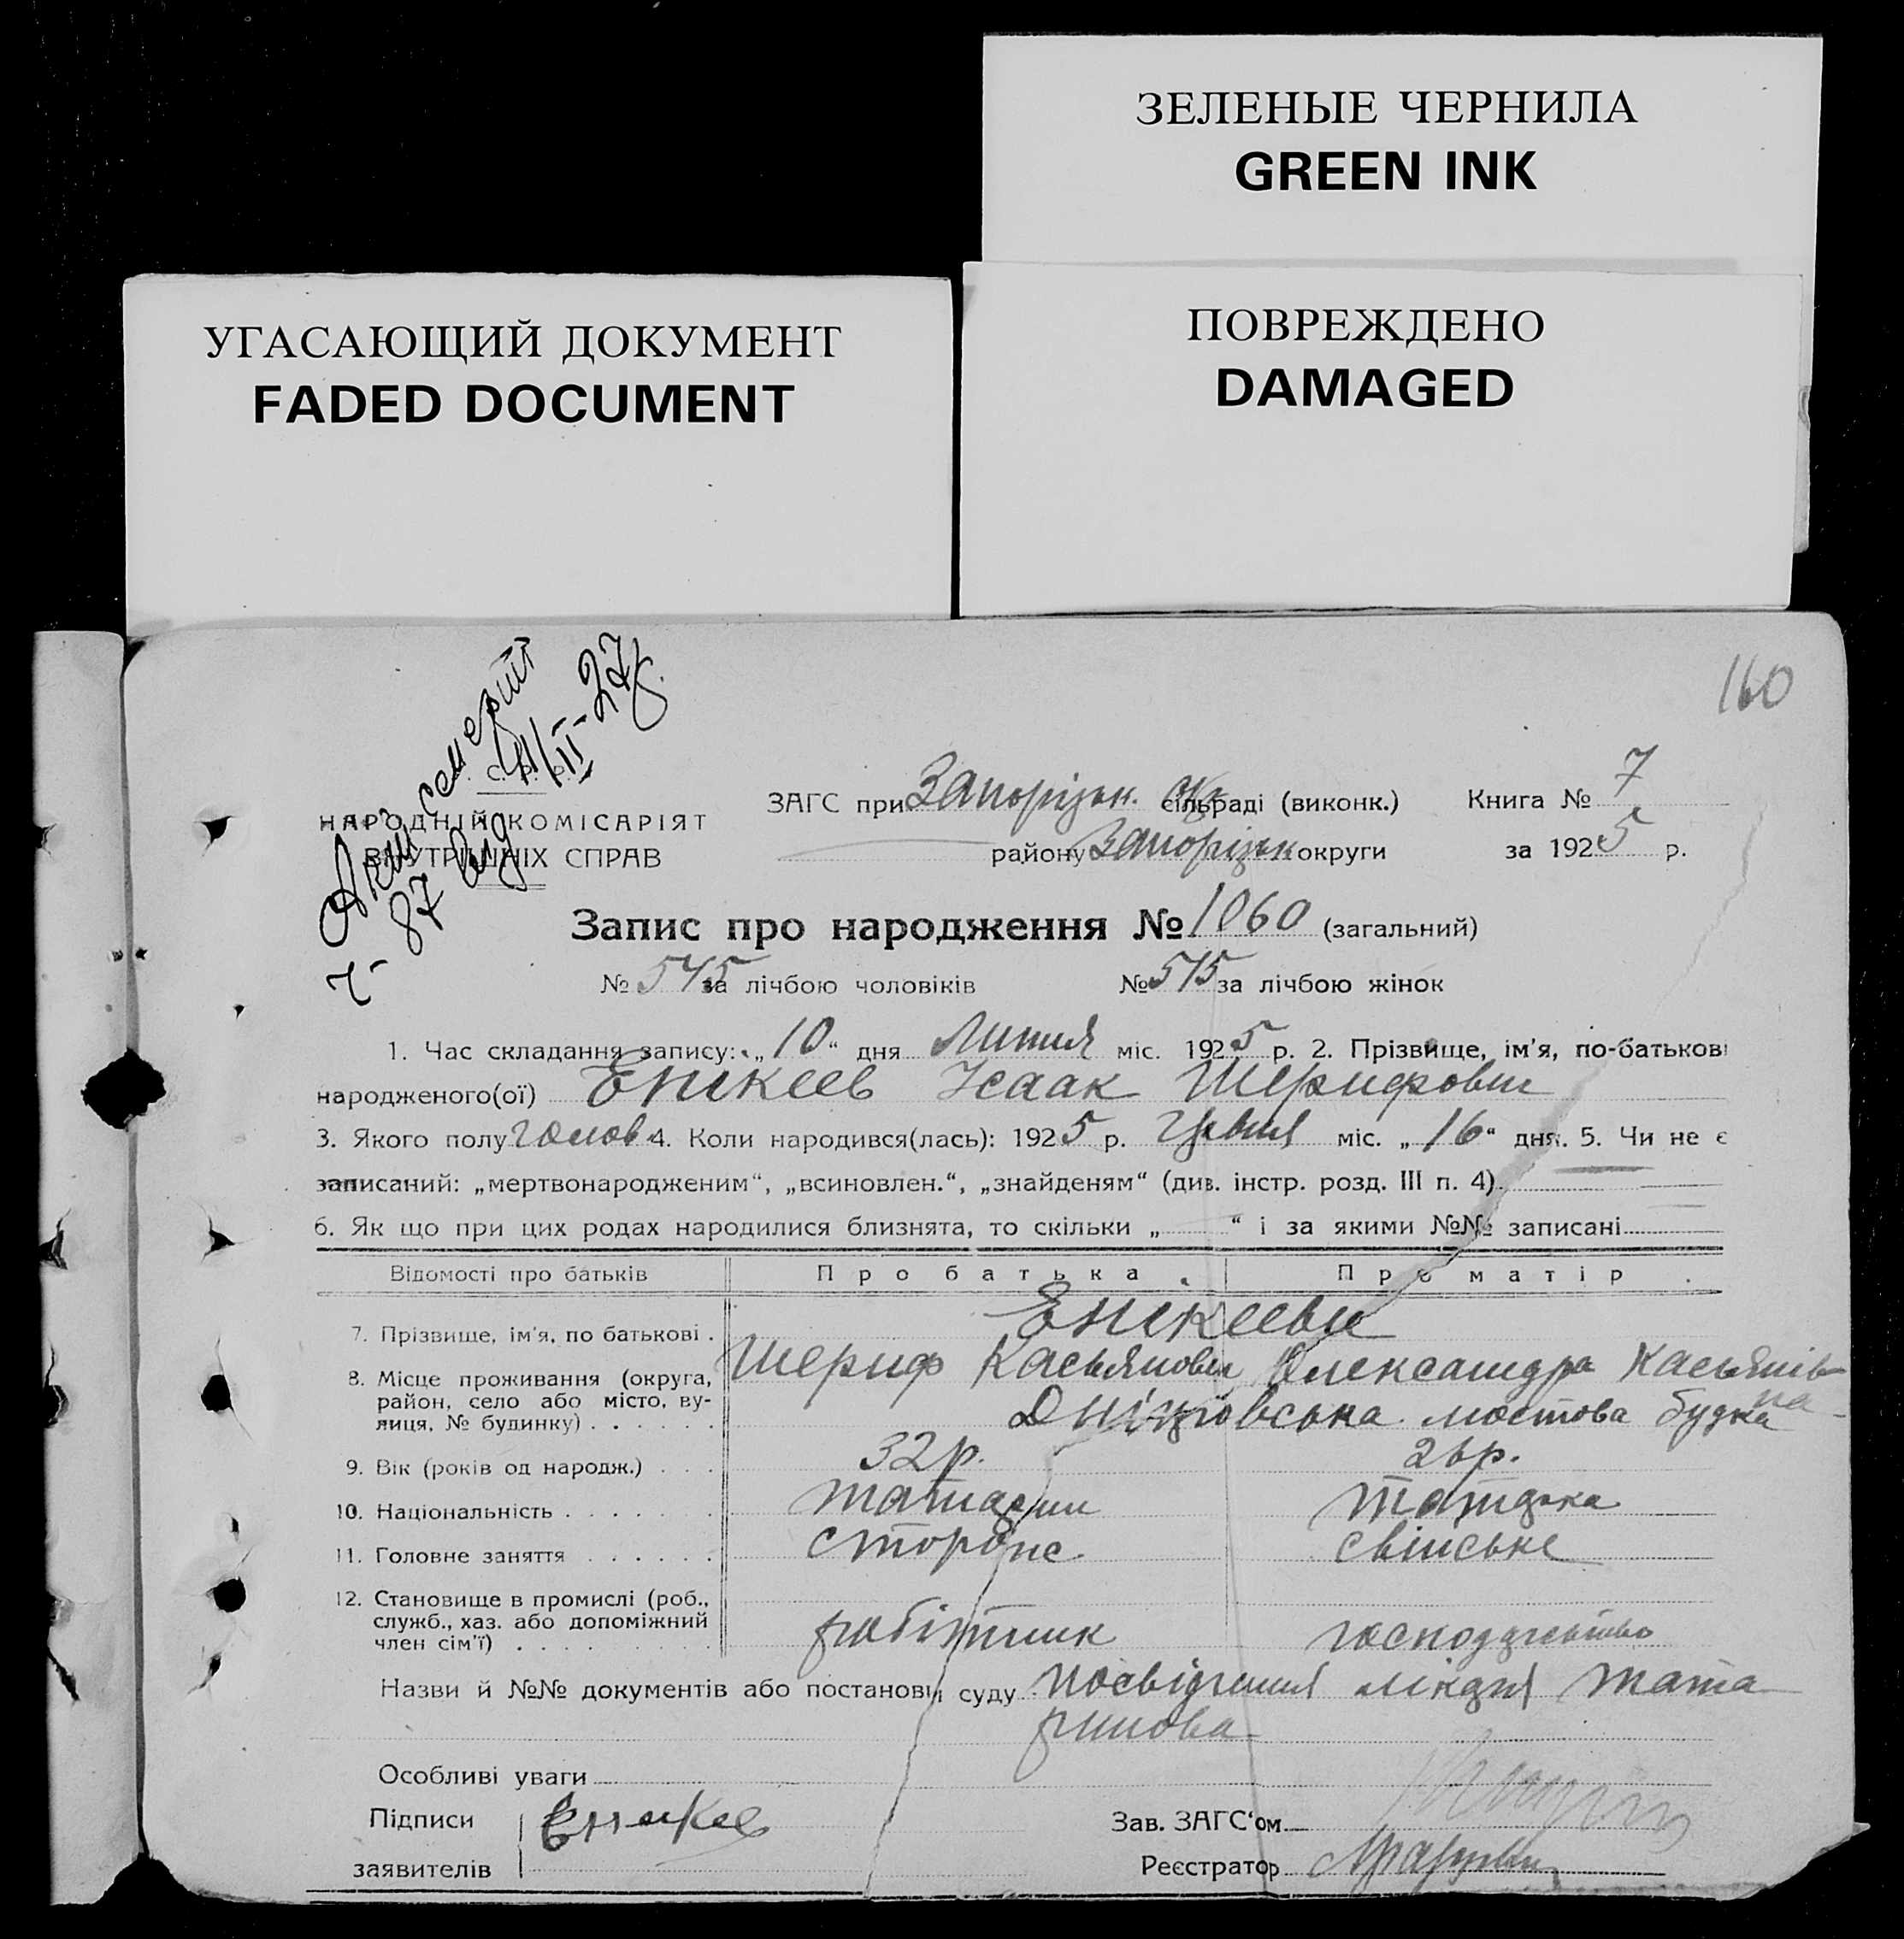 ЗЕЛЕНЫЕ ЧЕРНИЛА
GREEN INK
УГАСАЮЩИЙ ДОКУМЕНТ
FADED DOCUMENT
ПОВРЕЖДЕНО
DAMAGED
160
Акт смерти
ч- 87 від 11/II-27р.
С. Р. Р.
НАРОДНІЙ КОМІСАРІЯТ
ВНУТРІШНІХ СПРАВ
ЗАГС при Запорізьк. сільраді (виконк.) Книга № 7
району Запорізьк округи за 1925 р.
Запис про народження № 1060 (загальний)
№ 545 за лічбою чоловіків № 515 за лічбою жінок
1. Час складання запису: „10“ дня Липня міс. 1925 р. 2. Прізвище, ім'я, по-батькові
народженого(ої) Енікеев Ісаак Шерифович
3. Якого полу чолов 4. Коли народився(лась): 1925 р. Червня міс. „16“ дня. 5. Чи не є
записаний: „мертвонародженим“, „всиновлен.“, „знайденям“ (див. інстр. розд. III п. 4)
6. Як що при цих родах народилися близнята, то скільки „ “ і за якими №№ записані
Відомості про батьків Про батька Про матір
7. Прізвище, ім'я, по батькові . Енікееви
Шериф Касьянович Олександра Касьянів
на
8. Місце проживання (округа,
район, село або місто, ву-
лиця, № будинку) . . . . . . Дніпровська мостова будка
9. Вік (років од народж.) . . . 32р. 26р.
10. Національність . . . . . . татарин татарка
11. Головне заняття . . . . . . стороже свійське
12. Становище в промислі (роб.,
служб., хаз. або допоміжний
член сім'ї) . . . . робітник господарство
Назви й №№ документів або постанови суду Посвідчення лікаря Тата
ринова
Особливі уваги
Підписи Еникеев
заявителів
Зав. ЗАГС'ом
Реєстратор